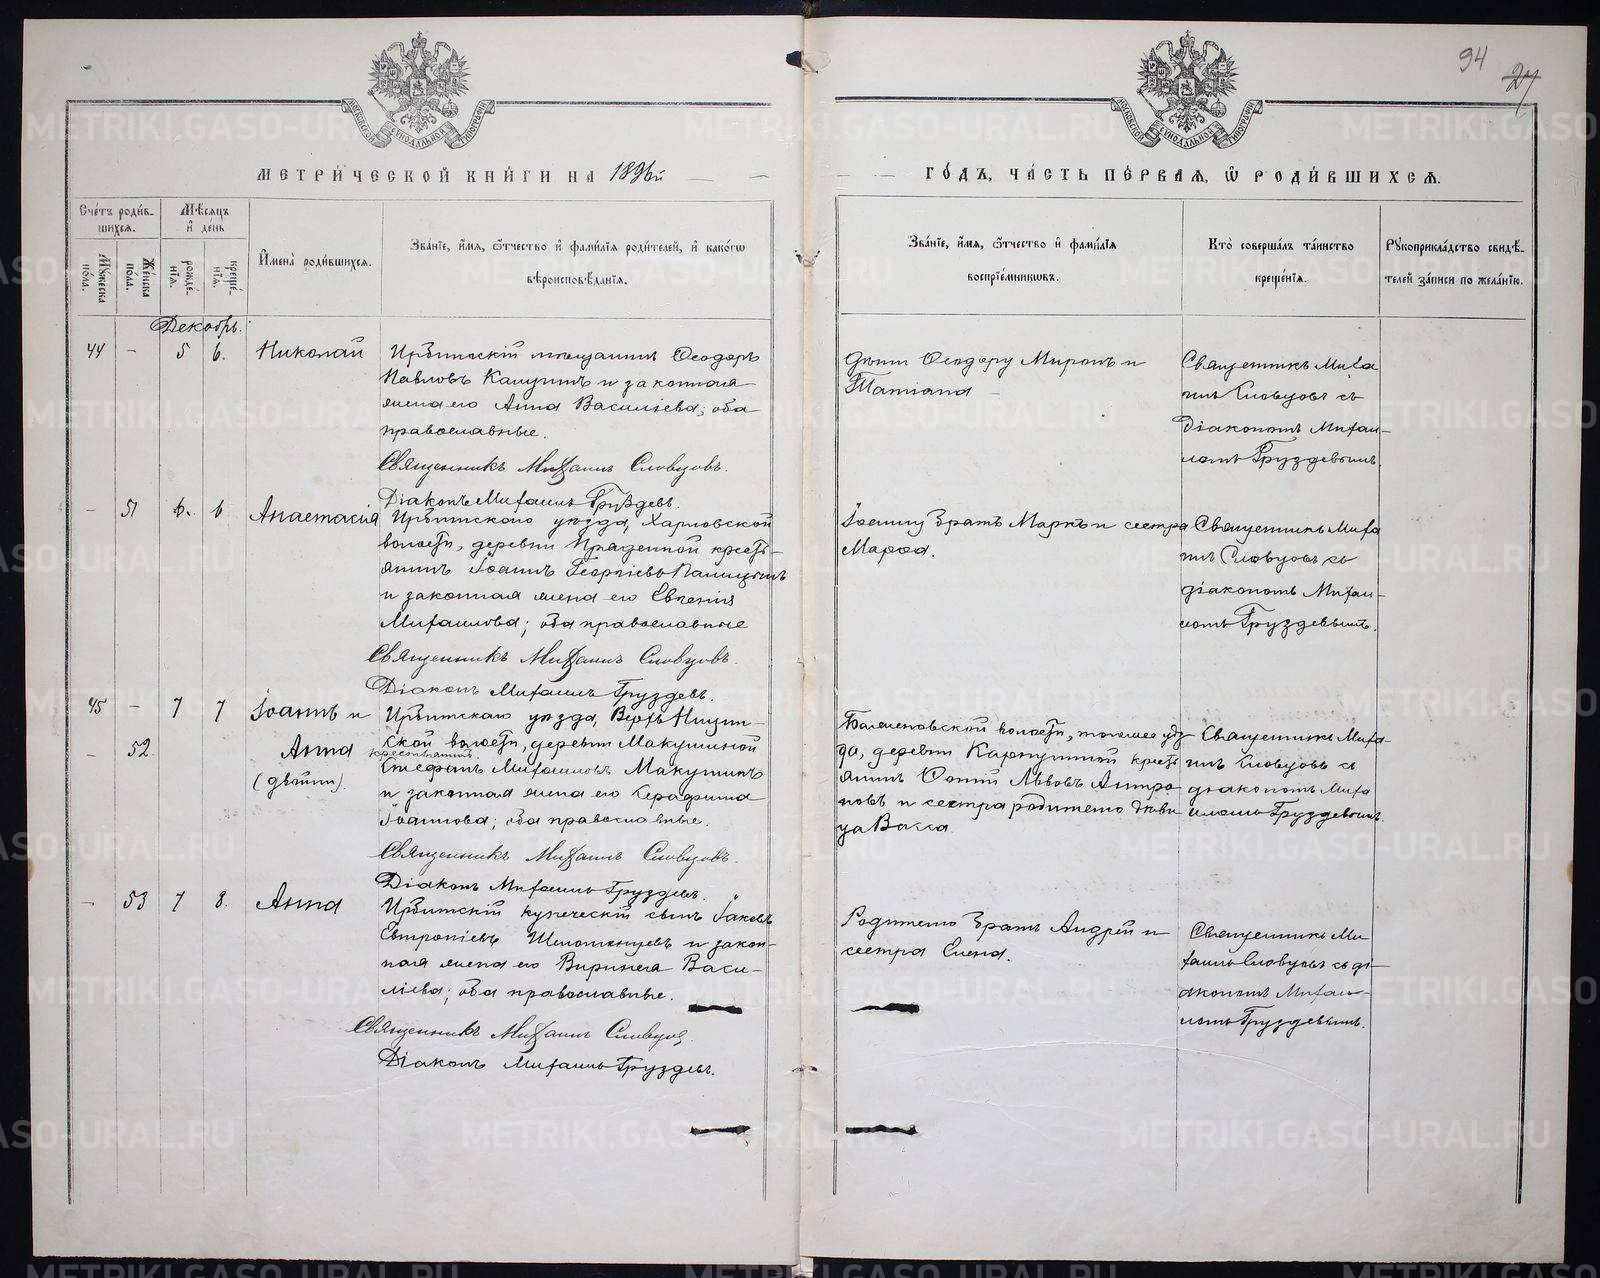 94
27
МОСКОВСКОЙ СѴНОДАЛЬНОЙ ТИПОГРАФІИ
МОСКОВСКОЙ СѴНОДАЛЬНОЙ ТИПОГРАФІИ
МЕТРИ́ЧЕСКОЙ КНИ́ГИ НА 1896й
ГО́ДЪ, ЧА́СТЬ ПЕ́РВАЯ, Ѡ РОДИ́ВШИХСѦ.
Сче́тъ роди́в-
шихся.
Му́жеска по́ла.
Же́нска по́ла.
Мѣ́сяцъ и де́нь
рожде́-нія.
креще́-нія.
Имена̀ роди́вшихся.
Зва́ніе, и́мя, о́тчество и фами́лія роди́телей, и како́гѡ
вѣроисповѣ́данія.
Зва́ніе, и́мя, о́тчество и фами́лія
воспріе́мниковъ.
Кто̀ соверша́лъ та́инство
креще́нія.
Рꙋкоприкла́дство свидѣ́-
телей за́писи по жела́нію.
Декабрь.
44 - 5 6. Николай
Ирбитскій мѣщанинъ Ѳеодоръ
Павловъ и законная
жена его Анна Василіева; оба
православные.
Священникъ Михаилъ Словцовъ.
Діаконъ Михаилъ Груздевъ.
дѣти Ѳеодору Миронъ и
Татіана -
Священникъ Миха
илъ Словцовъ съ
діакономъ Михаи-
ломъ Груздевымъ.
- 51 6. 6 Анастасія
Ирбитскаго уѣзда, Харловской
волости, деревни крестья-
янинъ Іоаннъ Георгіевъ
и законная жена его Евгенія
Михаилова; оба православные
Священникъ Михаилъ Словцовъ.
Діаконъ Михаилъ Груздевъ.
Іоанну братъ Маркъ и сестра
Марѳа.
Священникъ Миха
илъ Словцовъ съ
діакономъ Михаи-
ломъ Груздевымъ.
45 - 7 7 Іоаннъ и
- 52 Анна
(двойни).
Ирбитскаго уѣзда, Верхъ Ницин-
ской волости, деревни Макушиной
крестьянинъ
Стефанъ Михаиловъ Макушинъ
и законная жена его Серафима
Іоаннова; оба православные.
Священникъ Михаилъ Словцовъ.
Діаконъ Михаилъ Груздевъ.
волости, тогоже уѣз-
да, деревни крестья
янинъ Львовъ Антро
повъ и сестра родителю дѣви
ца Васса
Священникъ Миха-
илъ Словцовъ съ
діакономъ Миха
иломъ Груздевымъ.
- 53 7 8. Анна
Ирбитскій купеческій сынъ Іаковъ
Евтропіевъ и закон-
ная жена его Виринея Васи-
ліева; оба православные.
Священникъ Михаилъ Словцовъ.
Діаконъ Михаилъ Груздевъ.
Родителю братъ Андрей и
сестра Елена.
Священникъ Ми
хаилъ Словцовъ съ ді-
акономъ Михаи-
ломъ Груздевымъ.
METRIKI.GASO-URAL.RU